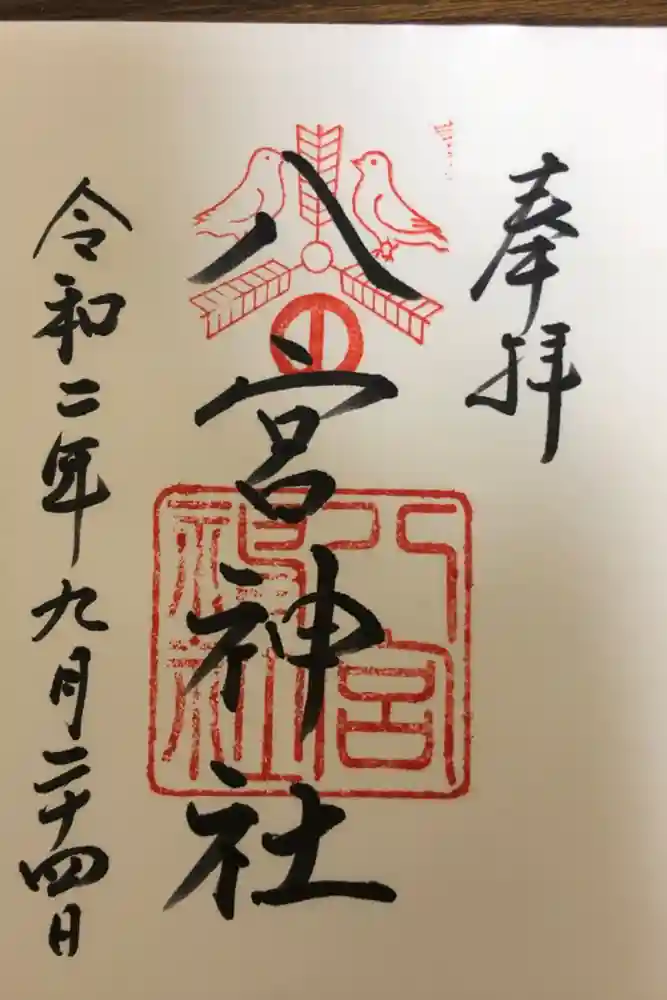 奉拝
八宮神社
八宮神社
令和二年九月二十四日